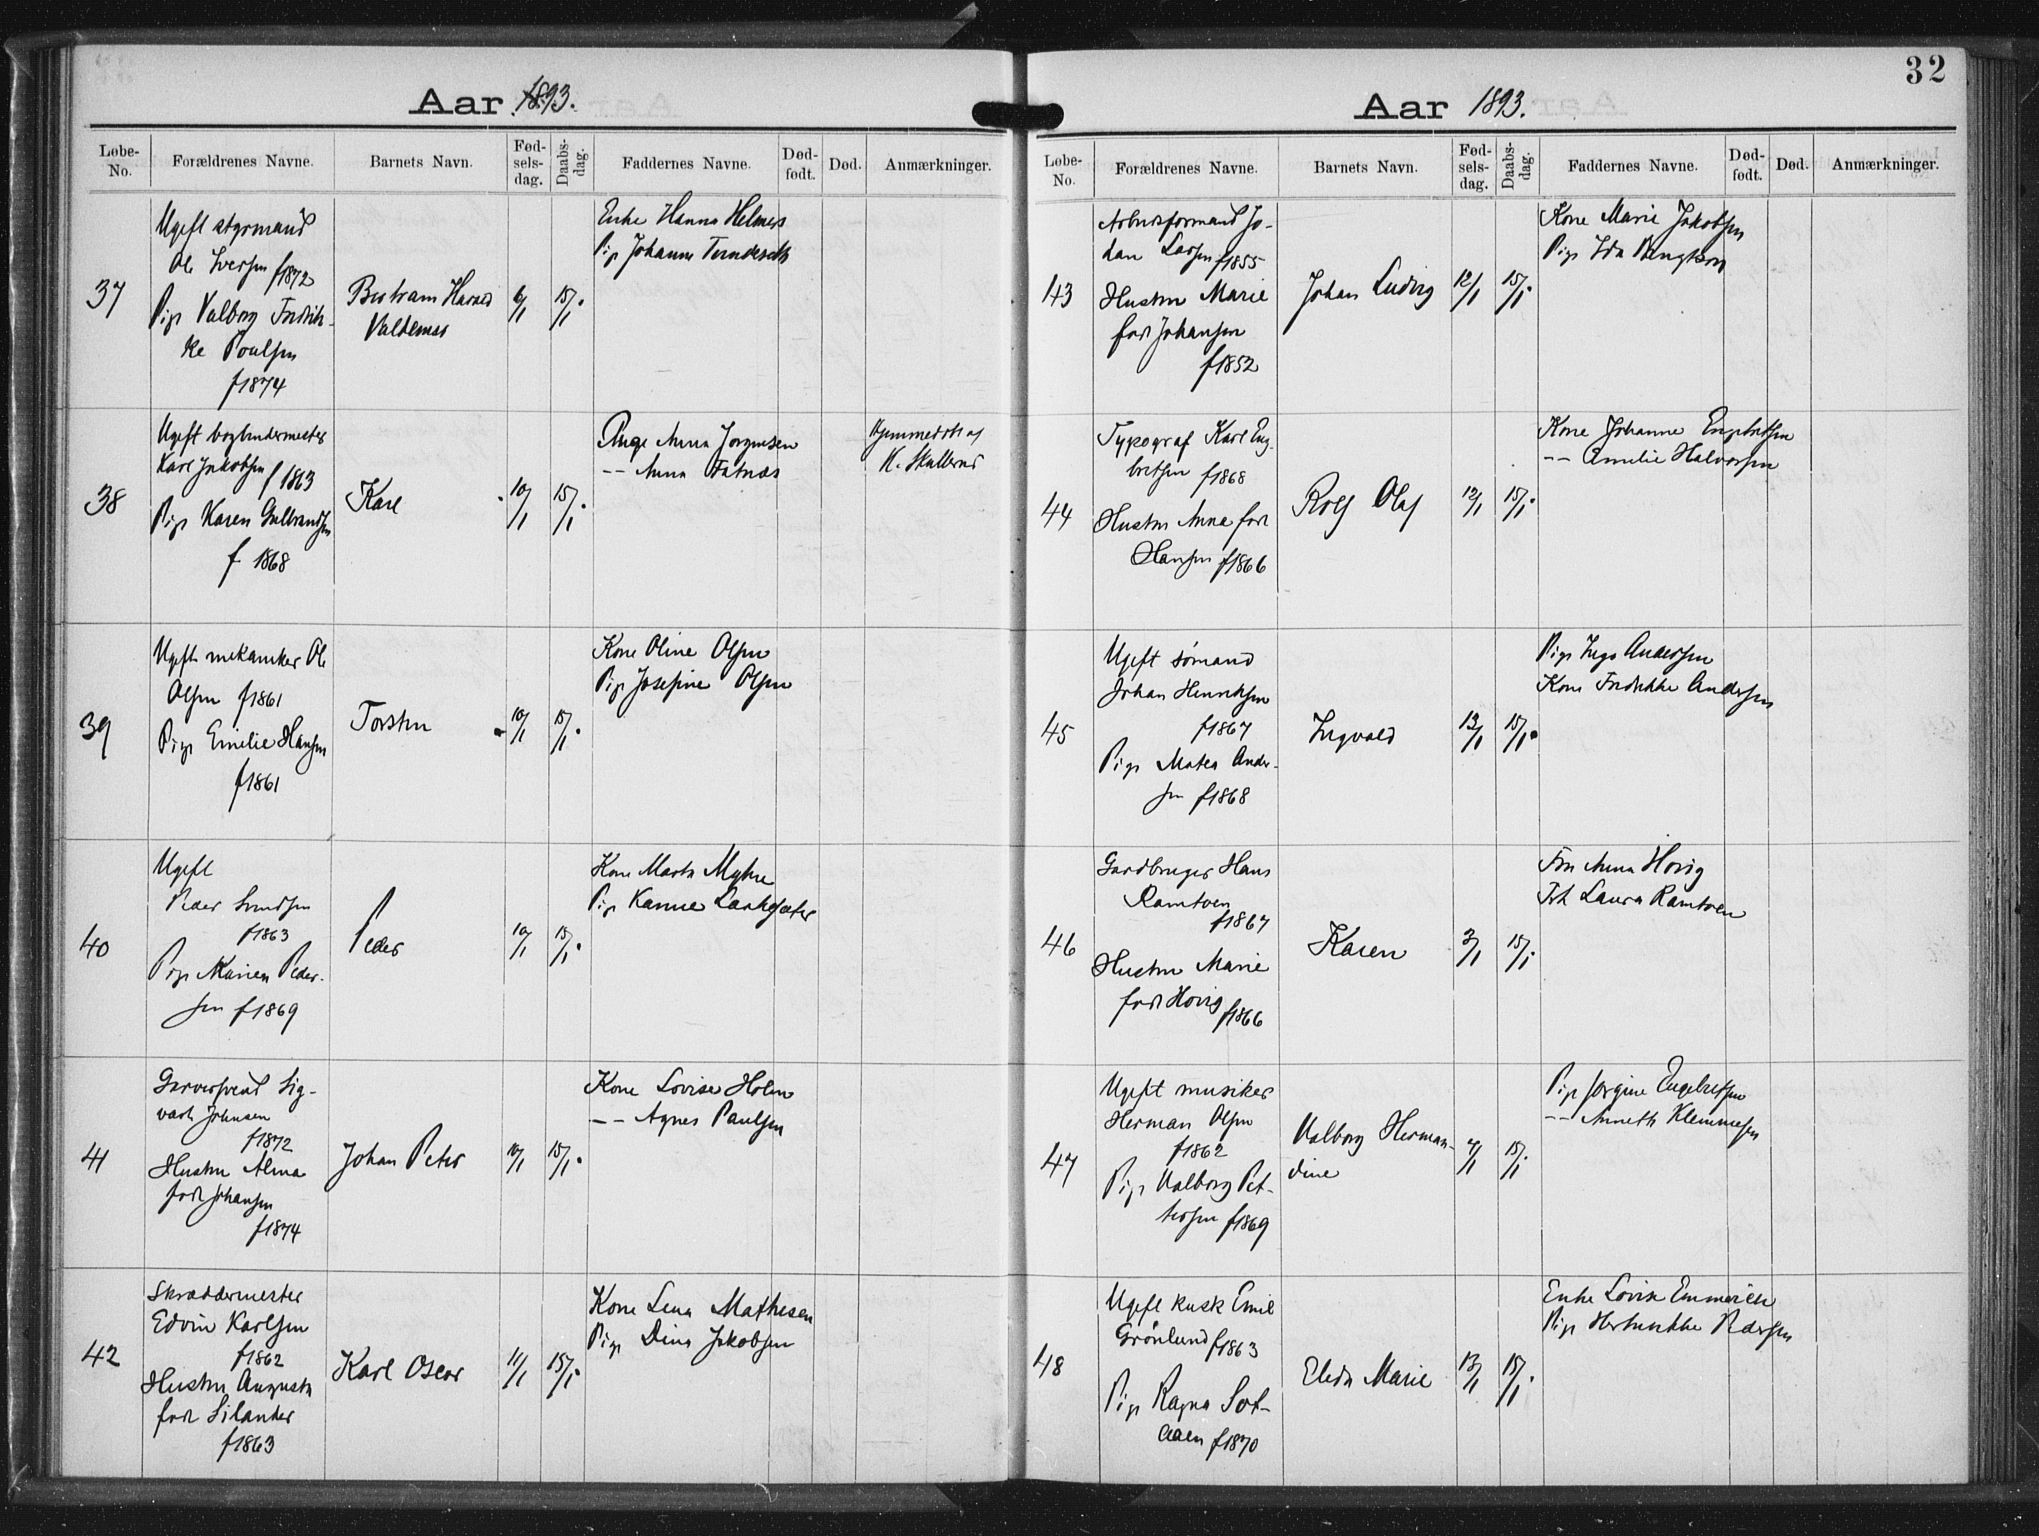 Aar 1893.
Løbe-No. Forældrenes Navne. Barnets Navn. Fød-sels-dag. Daabs-dag. Faddernes Navne. Død-født. Død. Anmærkninger.
37
Ugift styrmand
Ole Iversen f1872
Pige Valborg Fredrik-
ke Poulsen
f1874
Bertram Harald
Valdemar
6/1 15/1.
Enke Hanna Helmers
Pige Johanne
38
Ugift bogbindermester
Karl Jakobsen f1863
Pige Karen Gulbrandsen
f 1868
Karl
10/1 15/1.
Pige Anna Jorgensen
-- Anna
Hjemmedøbt af
K. Skullerud
39
Ugift mekaniker Ole
Olsen f1861
Pige Emilie Hansen
f1861
Torsten
10/1 15/1.
Kone Oline Olsen
Pige Josefine Olsen
40
Ugift
Peder Svendsen
f1863
Pige Maren Peder-
sen f1869
Peder
10/1 15/1.
Kone Marta Myhre
Pige
41
Garversvend Sig-
vart Johnsen
f1872
Hustru Alma
født Johansen
f1874
Johan Peter
10/1 15/1.
Kone Lovise Holm
-- Agnes Paulsen
42
Skræddermester
Edvin Karlsen
f1862
Hustru Augusta
født Silander
f1863
Karl Oscar
11/1 15/1.
Kone Lena Mathesen
Pige Dina Jakobsen
32
Aar 1893.
Løbe-No. Forældrenes Navne. Barnets Navn. Fød-sels-dag. Daabs-dag. Faddernes Navne. Død-født. Død. Anmærkninger.
43
Arbeidsformand Jo-
han Larsen f1855
Hustru Marie
født Johansen
f1852
Johan Ludvig
12/1 15/1.
Kone Marie Jakobsen
Pige Ida Bengtson
44
Typograf Karl Eng-
bretsen f1868
Hustru Anna født
Hansen f1866
Rolf Olaf
12/1 15/1.
Kone Johanne Engebretsen
-- Amelie Halvorsen
45
Ugift sømand
Johan Henriksen
f1867
Pige Matea Ander-
sen f1868
Ingvald
13/1 15/1.
Pige Inga Andersen
Kone Fredrikke Andersen
46
Gardbruger Hans
Ramtven
f1867
Hustru Marie
født Hovig f1866
Karen
3/1 15/1.
Fru Anna Hovig
Frk Laura Ramtven
47
Ugift musiker
Herman Olsen
f1862
Pige Valborg Pet-
tersen f1869
Valborg Herman-
dine
4/1 15/1.
Pige Jørgine Engebretsen
-- Annette Klemmesen
48
Ugift kusk Emil
Grönlund f1863
Pige Ragna Sot-
aaen f1870
Eleda Marie
13/1 15/1.
Enke Lovise
Pige Pedersen